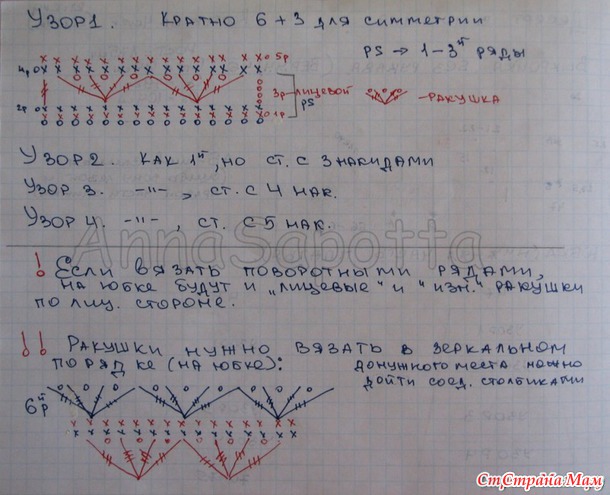 Узор 1. Кратно 6 + 3 для симметрии
PS → 1 – 3й ряды
5р
4р
3р – лицевой
PS
2р
1р
– ракушка
Узор 2. как 1й, но ст. с 3 накидами
Узор 3. –"– , ст. с 4 нак.
Узор 4. –"– , ст. с 5 нак.
AnnaSabotta
! Если вязать поворотными рядами,
на юбке будут и „лицевые" и "изн." ракушки
по лиц. стороне.
!! Ракушки нужно вязать в зеркальном
порядке (на юбке):
до нужного места можно
дойти соед. столбиками
6й р
СтСтрана Мам